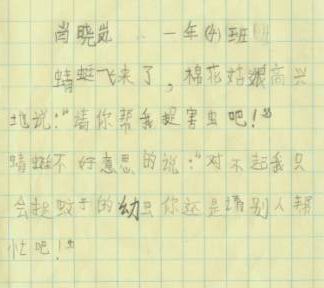 肖晓岚 一年(4)班
蜻蜓飞来了，棉花姑娘高兴
地说："请你帮我捉害虫吧！"
蜻蜓不好意思的说："对不起我只
会捉蚊子的幼虫你还是请别人帮
忙吧！"